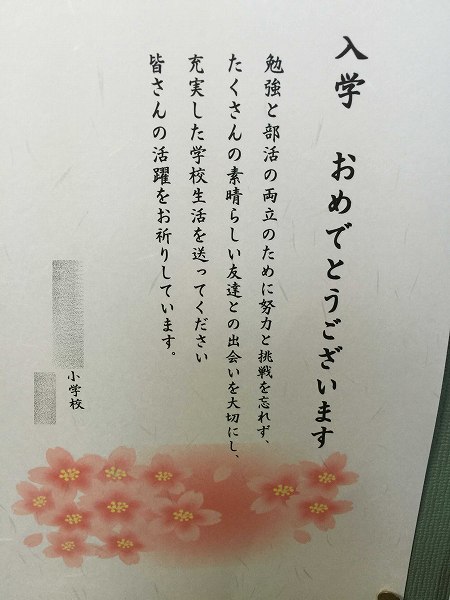 入学　おめでとうございます
勉強と部活の両立のために努力と挑戦を忘れず、
たくさんの素晴らしい友達との出会いを大切にし、
充実した学校生活を送ってください
皆さんの活躍をお祈りしています。
小学校